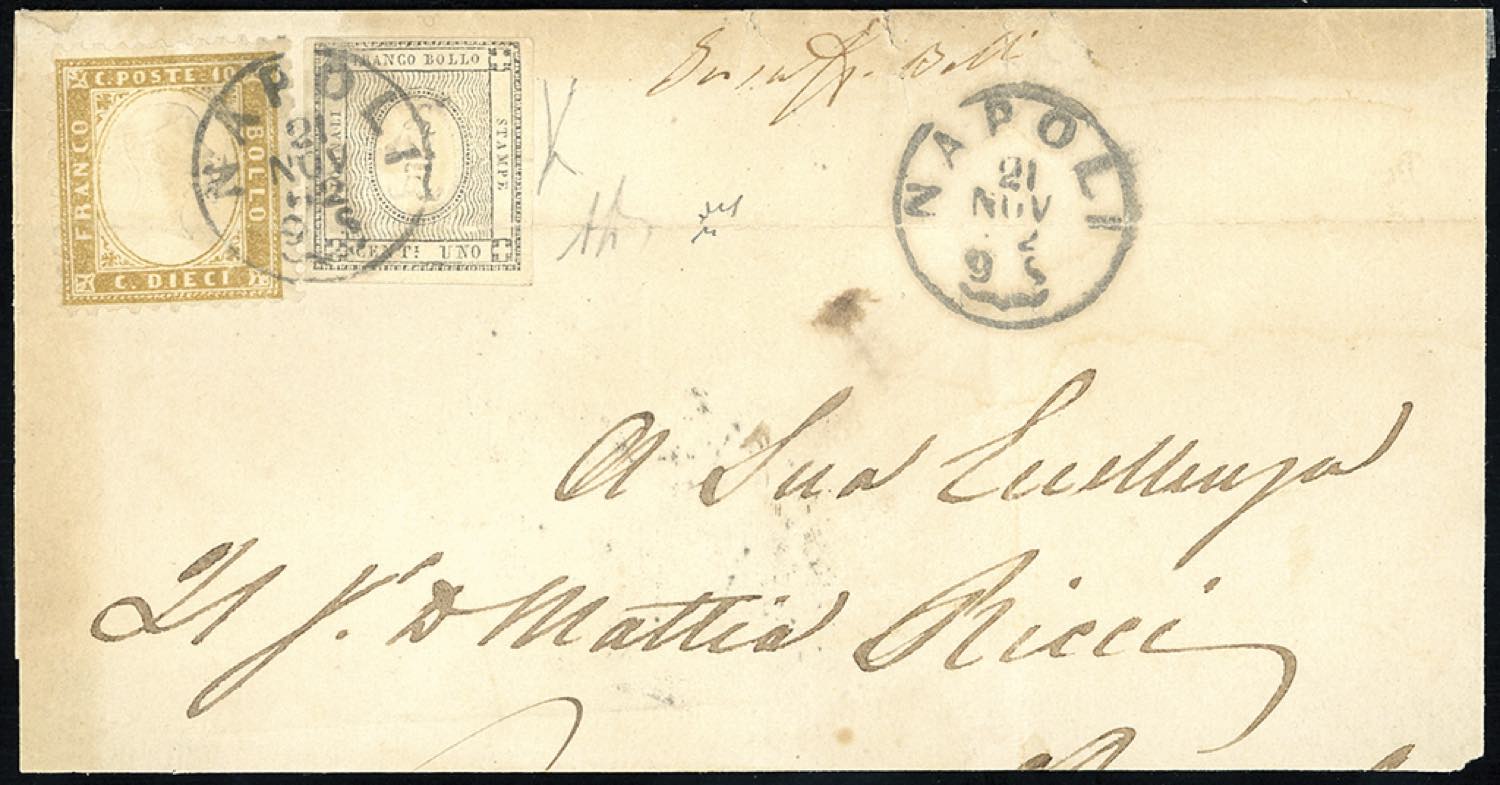 C. POSTE. 10
FRANCO
BOLLO
C. DIECI
FRANCO BOLLO
STAMPE
CENT: UNO
NAPOLI
21
NOV
NAPOLI
21
NOV
9 S
A Sua Eccellenza
Il S.r D Mattia Ricci